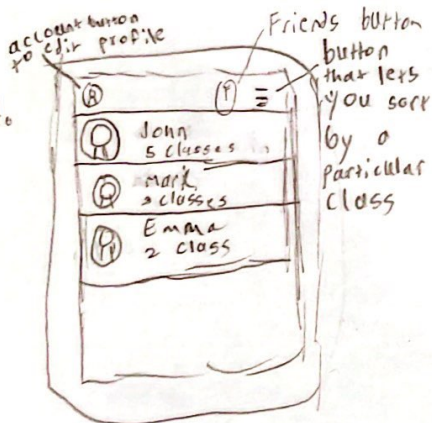 account button
to edit profile
Friends button
button
that lets
you sort
by a
particular
class
A
F
John
5 classes in
Mark
3 classes
Emma
2 class